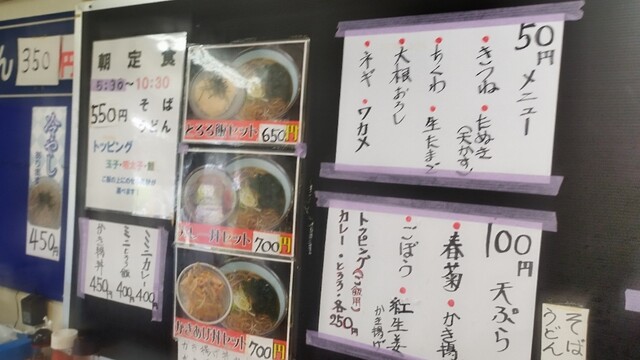 50円メニュー
•きつね •たぬき
(天かす)
•ちくわ •生たまご
•大根おろし
•ネギ •ワカメ
100円 天ぷら
•春菊 •かき揚
•ごぼう •紅生姜
かき揚げ
トッピング(飯用)
カレー・とろろ・各250円
そば
うどん
とろろ飯セット 650円
丼セット 700円
かきあげ丼セット 700円
朝定食
5:30~10:30
550円 そば
うどん
トッピング
玉子・明太子・
ミニカレー 400円
ミニとろろ飯 400円
かき揚丼 450円
ん 350円
冷やし
450円